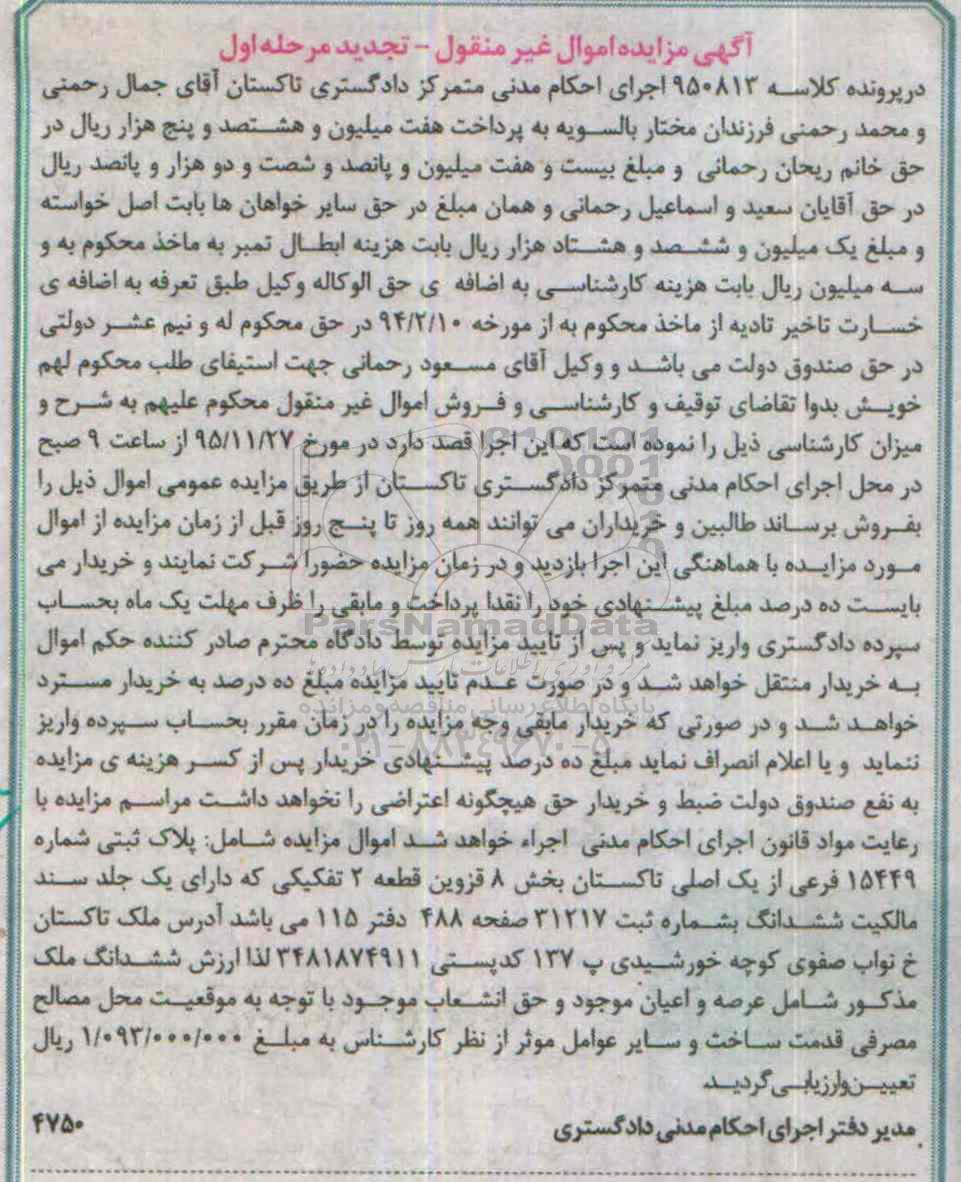 آگهی مزایده اموال غیر منقول - تجدید مرحله اول
در پرونده کلاسه ۹۵۰۸۱۳ اجرای احکام مدنی متمرکز دادگستری تاکستان آقای جمال رحمنی
و محمد رحمنی فرزندان مختار بالسویه به پرداخت هفت میلیون و هشتصد و پنج هزار ریال در
حق خانم ریحان رحمانی و مبلغ بیست و هفت میلیون و پانصد و شصت و دو هزار و پانصد ریال
در حق آقایان سعید و اسماعیل رحمانی و همان مبلغ در حق سایر خواهان ها بابت اصل خواسته
و مبلغ یک میلیون و ششصد و هشتاد هزار ریال بابت هزینه ابطال تمبر به ماخذ محکوم به و
سه میلیون ریال بابت هزینه کارشناسی به اضافه ی حق الوکاله وکیل طبق تعرفه به اضافه ی
خسارت تاخیر تادیه از ماخذ محکوم به از مورخه ۹۴/۲/۱۰ در حق محکوم له و نیم عشر دولتی
در حق صندوق دولت می باشد و وکیل آقای مسعود رحمانی جهت استیفای طلب محکوم لهم
خویش بدوا تقاضای توقیف و کارشناسی و فروش اموال غیر منقول محکوم علیهم به شرح و
میزان کارشناسی ذیل را نموده است که این اجرا قصد دارد در مورخ ۹۵/۱۱/۲۷ از ساعت ۹ صبح
در محل اجرای احکام مدنی متمرکز دادگستری تاکستان از طریق مزایده عمومی اموال ذیل را
بفروش برساند طالبین و خریداران می توانند همه روز تا پنج روز قبل از زمان مزایده از اموال
مورد مزایده با هماهنگی این اجرا بازدید و در زمان مزایده حضورا شرکت نمایند و خریدار می
بایست ده درصد مبلغ پیشنهادی خود را نقدا پرداخت و مابقی را ظرف مهلت یک ماه بحساب
سپرده دادگستری واریز نماید و پس از تایید مزایده توسط دادگاه محترم صادر کننده حکم اموال
به خریدار منتقل خواهد شد و در صورت عدم تایید مزایده مبلغ ده درصد به خریدار مسترد
خواهد شد و در صورتی که خریدار مابقی وجه مزایده را در زمان مقرر بحساب سپرده واریز
ننماید و یا اعلام انصراف نماید مبلغ ده درصد پیشنهادی خریدار پس از کسر هزینه ی مزایده
به نفع صندوق دولت ضبط و خریدار حق هیچگونه اعتراضی را نخواهد داشت مراسم مزایده با
رعایت مواد قانون اجرای احکام مدنی اجراء خواهد شد اموال مزایده شامل: پلاک ثبتی شماره
۱۵۴۴۹ فرعی از یک اصلی تاکستان بخش ۸ قزوین قطعه ۲ تفکیکی که دارای یک جلد سند
مالکیت ششدانگ بشماره ثبت ۳۱۲۱۷ صفحه ۴۸۸ دفتر ۱۱۵ می باشد آدرس ملک تاکستان
خ نواب صفوی کوچه خورشیدی پ ۱۳۷ کدپستی ۳۴۸۱۸۷۴۹۱۱ لذا ارزش ششدانگ ملک
مذکور شامل عرصه و اعیان موجود و حق انشعاب موجود با توجه به موقعیت محل مصالح
مصرفی قدمت ساخت و سایر عوامل موثر از نظر کارشناس به مبلغ ۱/۰۹۳/۰۰۰/۰۰۰ ریال
تعیین وارزیابی گردید.
مدیر دفتر اجرای احکام مدنی دادگستری ۴۷۵۰
ParsNamadData
پایگاه اطلاع رسانی مناقصه و مزایده
۰۲۱-۸۸۳۴۹۶۷۰-۵